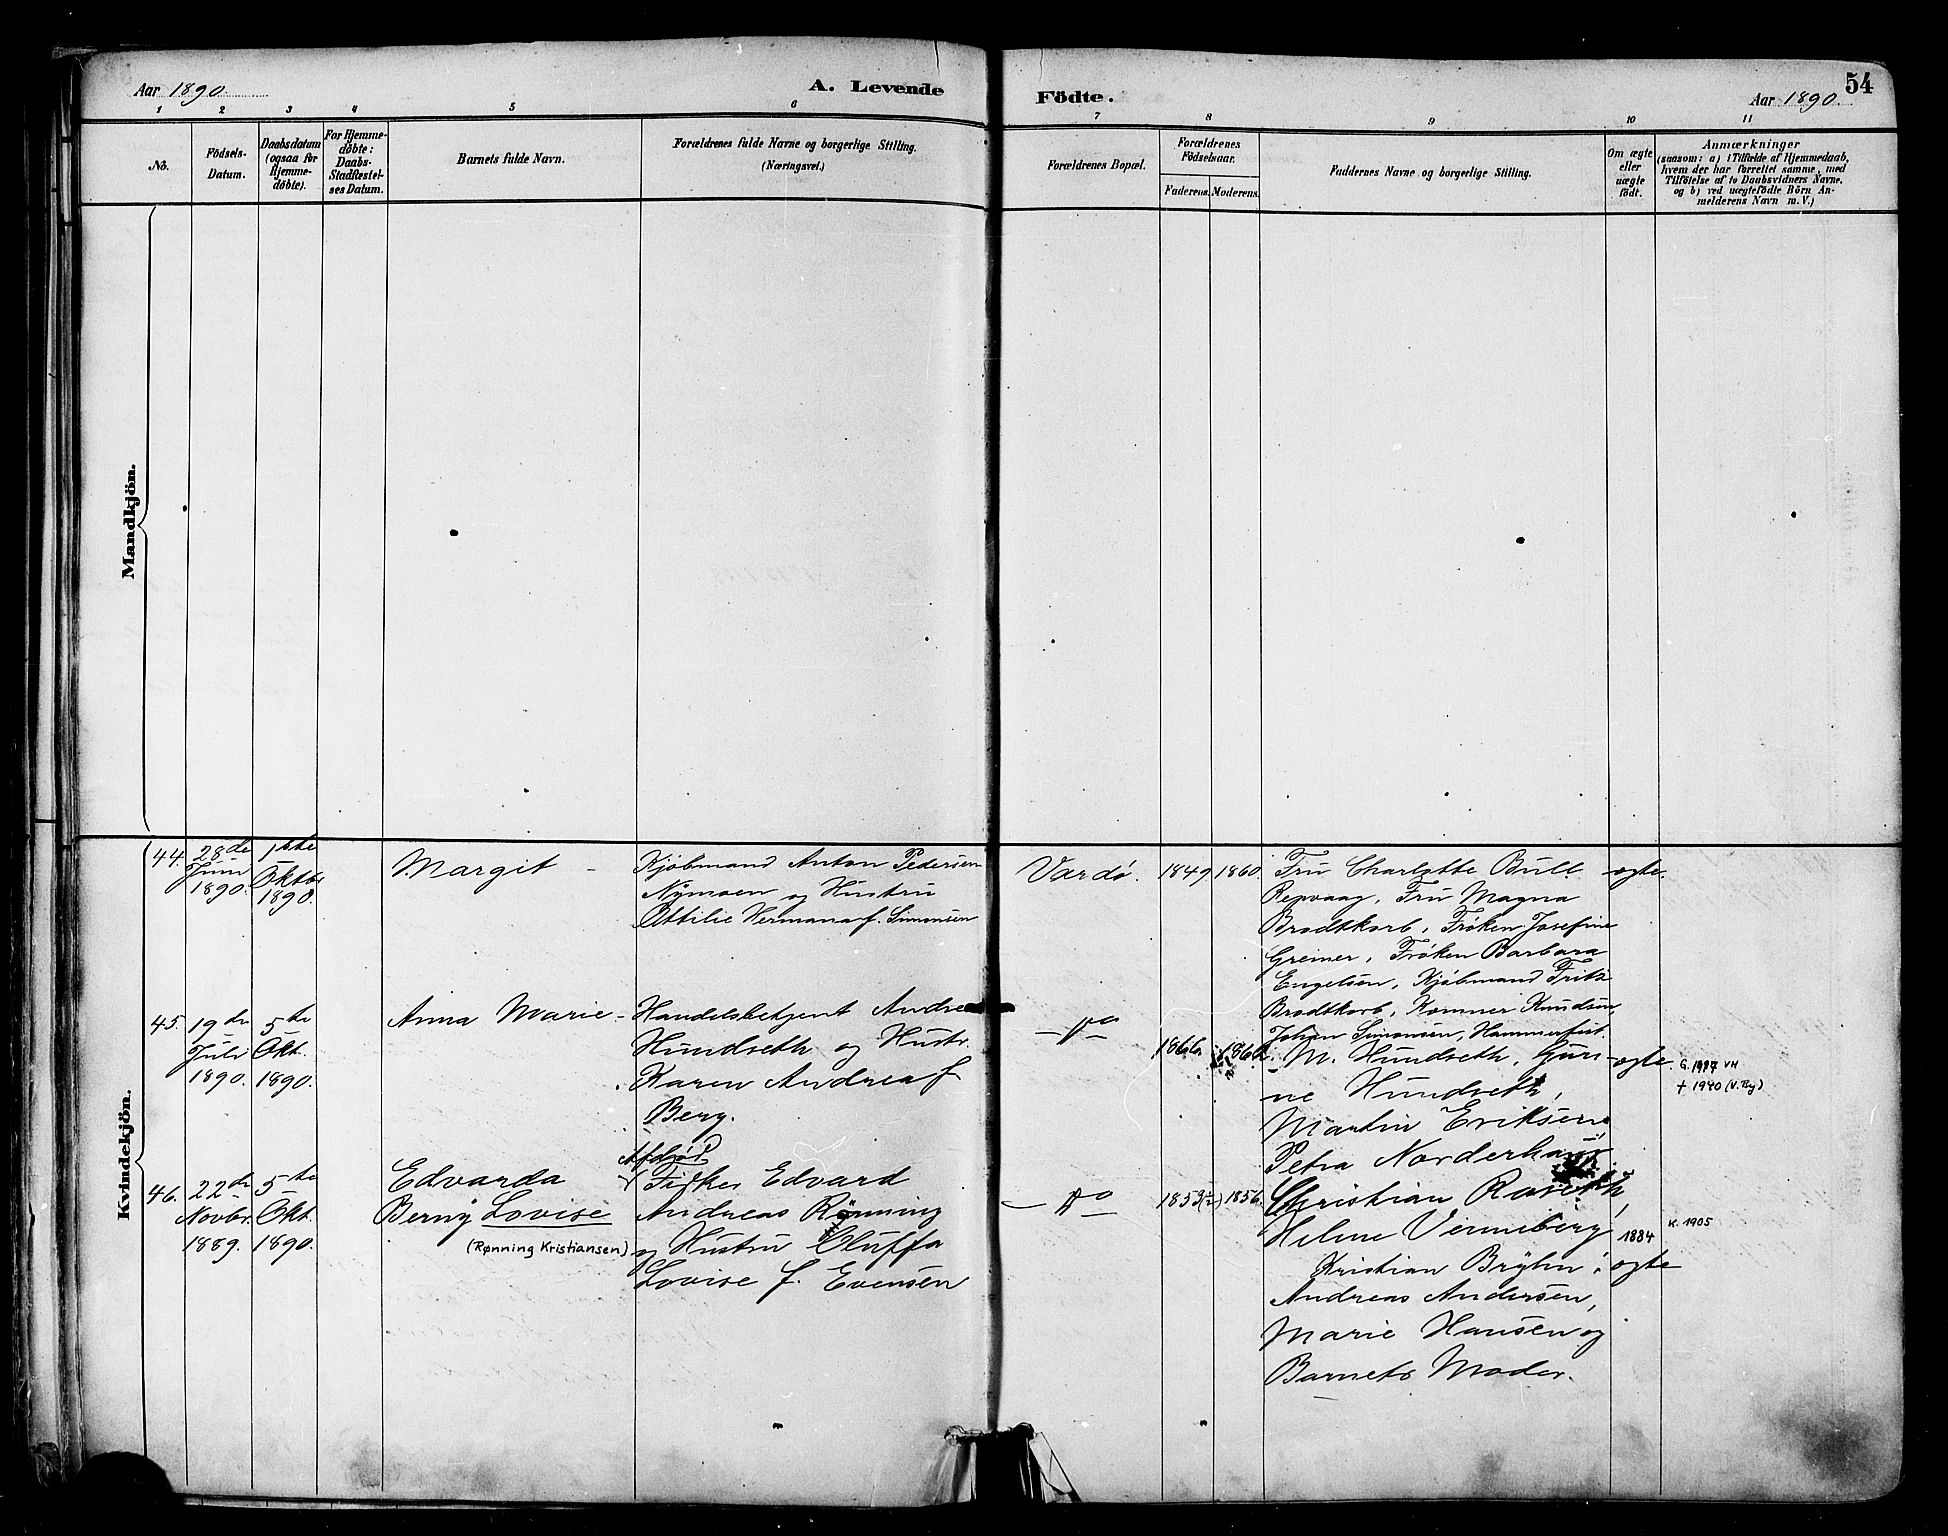 Aar 1890.
A. Levende
Födte.
Aar 1890.
54
1 2 3 4 5 6 7 8 9 10 11
No.
Födsels-
Datum.
Daabsdatum
(ogsaa for
Hjemme-
döbte).
For Hjemme-
döbte:
Daabs-
Stadfæstel-
ses Datum.
Barnets fulde Navn.
Forældrenes fulde Navne og borgerlige Stilling.
(Næringsvei.)
Forældrenes Bopæl.
Forældrenes
Födselsaar.
Faderens. Moderens.
Faddernes Navne og borgerlige Stilling.
Om ægte
eller
uægte
födt.
Anmærkninger
(saasom: a) i Tilfælde af Hjemmedaab,
hvem der har forrettet samme, med
Tilföielse af to Daabsvidners Navne,
og b) ved uægtefödte Börn An-
melderens Navn m. V.)
Mandkjön.
Kvindekjön.
44.
28de
Juni
1890.
1ste
Oktbr
1890.
Margit -
Kjøbmand Anton Pedersen
Nymoen og Hustru
Ottilie Hermana f. Simonsen
Vardø.
1849 1860.
Fru Charlotte Bull
Repvaag, Fru Magna
Brodtkorb, Frøken Josefine
Greiner, Frøken Barbara
Engelsen, Kjøbmand Frits
Brodtkorb, Knudsen,
Johan Simonsen, Hammerfest.
ægte.
45.
19de
Juli
1890.
5te
Okt.
1890.
Anna Marie -
Handelsbetjent Andrea
Hundseth og Hustr.
Karen Andrea f
Berg.
- Do -
1866.
M. Hundseth, Guri-
ne Hundseth,
Martin Eriksen
Petra
ægte.
G. 1997 VH
† 1940 (V.Tly)
46.
22de
Novbr.
1889.
5te
Okt.
1890.
Edvarda
Berny Lovise
(Rønning Kristiansen)
Afdød
Fisker Edvard
Andreas Rønning
og Hustru Oluffa
Lovise f. Evensen
- Do -
1853(½) 1856.
Christian Raseth,
Helene Venneberg
Kristian Brylin,
Andreas Andersen,
Marie Hansen og
Barnets Moder.
1884
ægte
K. 1905